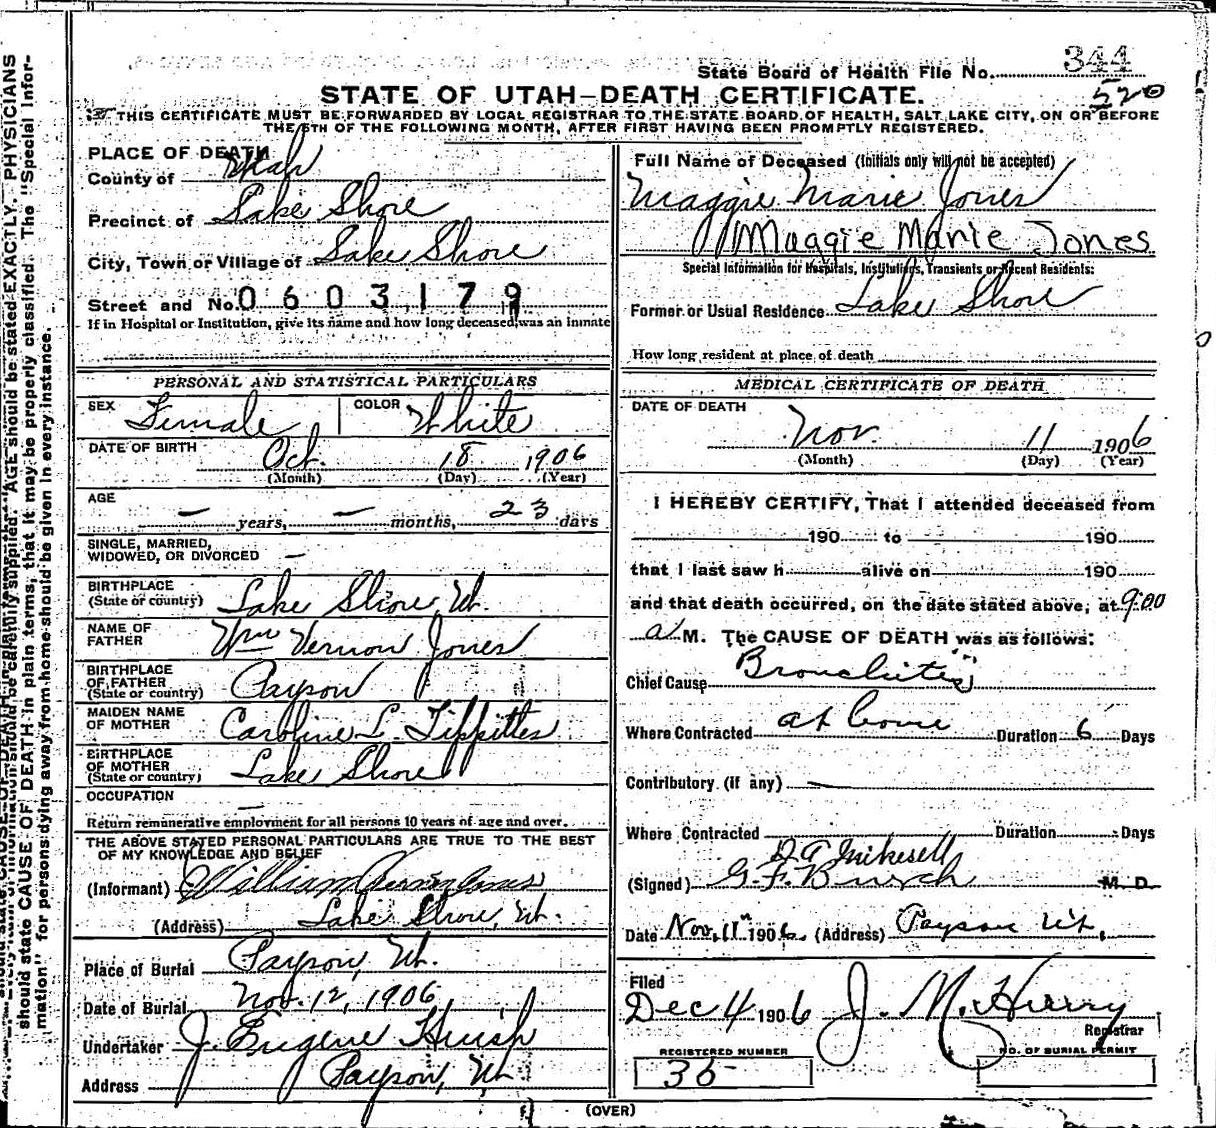 344
State Board of Health File No.
520
STATE OF UTAH—DEATH CERTIFICATE.
THIS CERTIFICATE MUST BE FORWARDED BY LOCAL REGISTRAR TO THE STATE BOARD OF HEALTH, SALT LAKE CITY, ON OR BEFORE
THE 5TH OF THE FOLLOWING MONTH, AFTER FIRST HAVING BEEN PROMPTLY REGISTERED.
PLACE OF DEATH
County of Utah
Precinct of Lake Shore
City, Town or Village of Lake Shore
Street and No. 0603179
If in Hospital or Institution, give its name and how long deceased was an inmate
PERSONAL AND STATISTICAL PARTICULARS
SEX Female COLOR White
DATE OF BIRTH Oct. 18 1906
(Month) (Day) (Year)
AGE
— years, — months, 23 days
SINGLE, MARRIED,
WIDOWED, OR DIVORCED —
BIRTHPLACE
(State or country) Lake Shore, Ut.
NAME OF
FATHER Wm Vernon Jones
BIRTHPLACE
OF FATHER
(State or country) Payson
MAIDEN NAME
OF MOTHER Caroline L. Tippitts
BIRTHPLACE
OF MOTHER
(State or country) Lake Shore
OCCUPATION —
Return remunerative employment for all persons 10 years of age and over.
THE ABOVE STATED PERSONAL PARTICULARS ARE TRUE TO THE BEST
OF MY KNOWLEDGE AND BELIEF
(Informant) William Vernon Jones
(Address) Lake Shore, Ut.
Place of Burial Payson, Ut.
Date of Burial Nov. 12, 1906
Undertaker J. Eugene Huish
Address Payson, Ut
Full Name of Deceased (Initials only will not be accepted)
Maggie Marie Jones
Maggie Marie Jones
Special Information for Hospitals, Institutions, Transients or Recent Residents:
Former or Usual Residence Lake Shore
How long resident at place of death
MEDICAL CERTIFICATE OF DEATH
DATE OF DEATH
Nov. 11 1906
(Month) (Day) (Year)
I HEREBY CERTIFY, That I attended deceased from
190 to 190
that I last saw h alive on 190
and that death occurred, on the date stated above, at 9:00
a M. The CAUSE OF DEATH was as follows:
Chief Cause Bronchitis
Where Contracted at home Duration 6 Days
Contributory (if any) —
Where Contracted Duration Days
Mikesell
(Signed) G. F. M. D.
Date Nov, 11" 1906. (Address) Payson Ut.
Filed
Dec 4 1906 J. M.
Registrar
REGISTERED NUMBER
35
NO. OF BURIAL PERMIT
(OVER)
should state CAUSE OF DEATH in plain terms, that it may be properly classified. The "Special Infor-
mation" for persons dying away from home should be given in every instance.